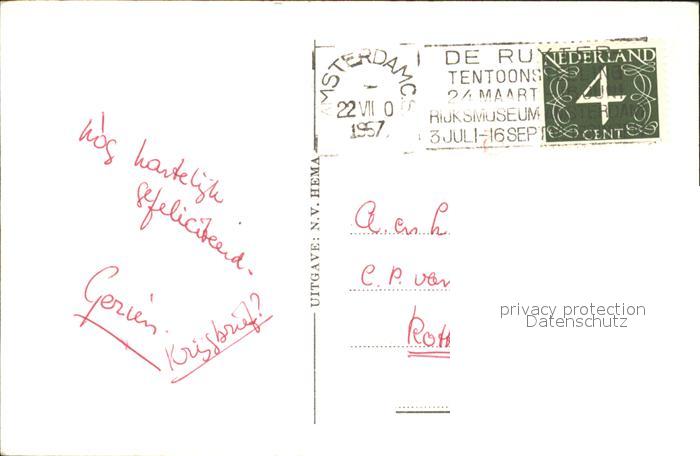 nòg hartelijk
gefeliciteerd.
Gerien.
Krijgbrief?
UITGAVE: N.V. HEMA
AMSTERDAM C.S
22 VII 0
1957
DE RUYTER
TENTOONS
24 MAART
RIJKSMUSEUM
3 JULI-16 SEPT
NEDERLAND
4
CENT
A. en h.
C. P. van
Rott
privacy protection
Datenschutz